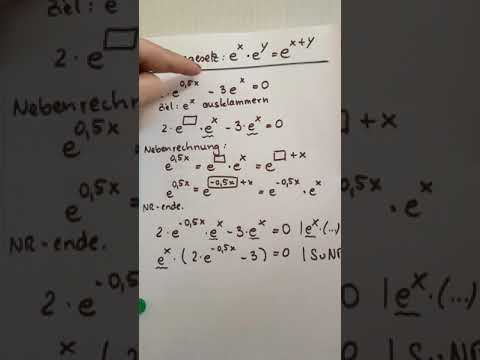 gesetz: e^x · e^y = e^(x+y)
2 · e^(0,5x) - 3e^x = 0
Ziel: e^x ausklammern
2 · e^□ · e^x - 3 · e^x = 0
Nebenrechnung:
e^(0,5x) = e^□ · e^x = e^(□ + x)
e^(0,5x) = e^(-0,5x + x) = e^(-0,5x) · e^x
NR-ende.
2 · e^(-0,5x) · e^x - 3 · e^x = 0 | e^x · (...)
e^x · (2 · e^(-0,5x) - 3) = 0 | SvNP